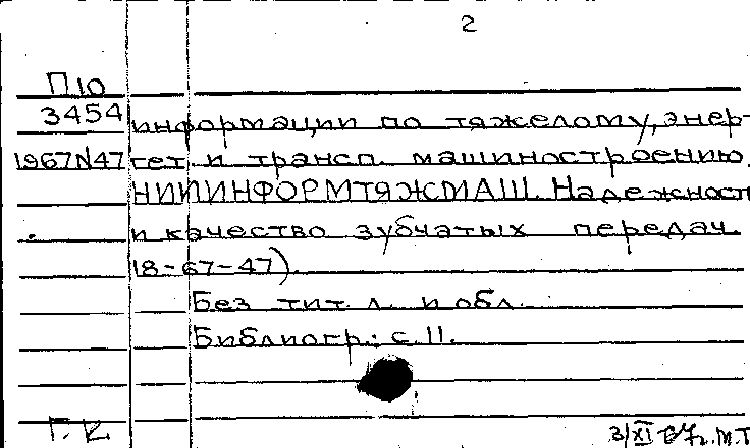 2
П10
3454 информации по тяжелому, энер-
1967N47 гет. и трансп. машиностроению.
НИИИНФОРМТЯЖМАШ. Надежность
и качество зубчатых передач.
18-67-47).
Без тит. л. и обл.
Библиогр.: с. 11.
Г. К. 3/XI-67г. М.Т